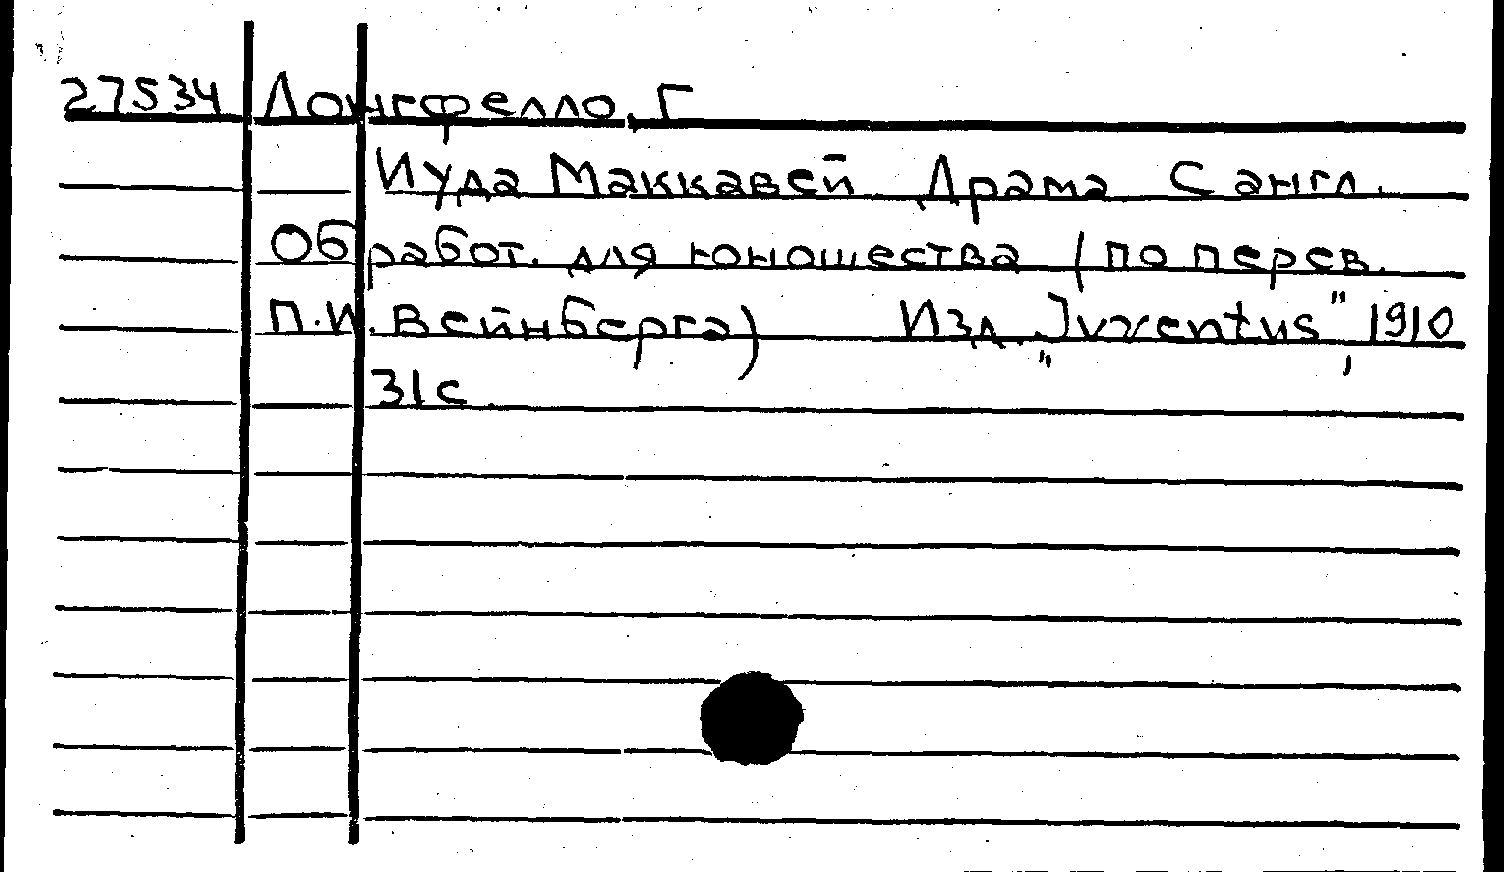 27534 Лонгфелло, Г
Иуда Маккавей Драма С англ.
Обработ. для юношества (по перев.
П.И. Вейнберга) Изд. „Juventus", 1910
31 с.